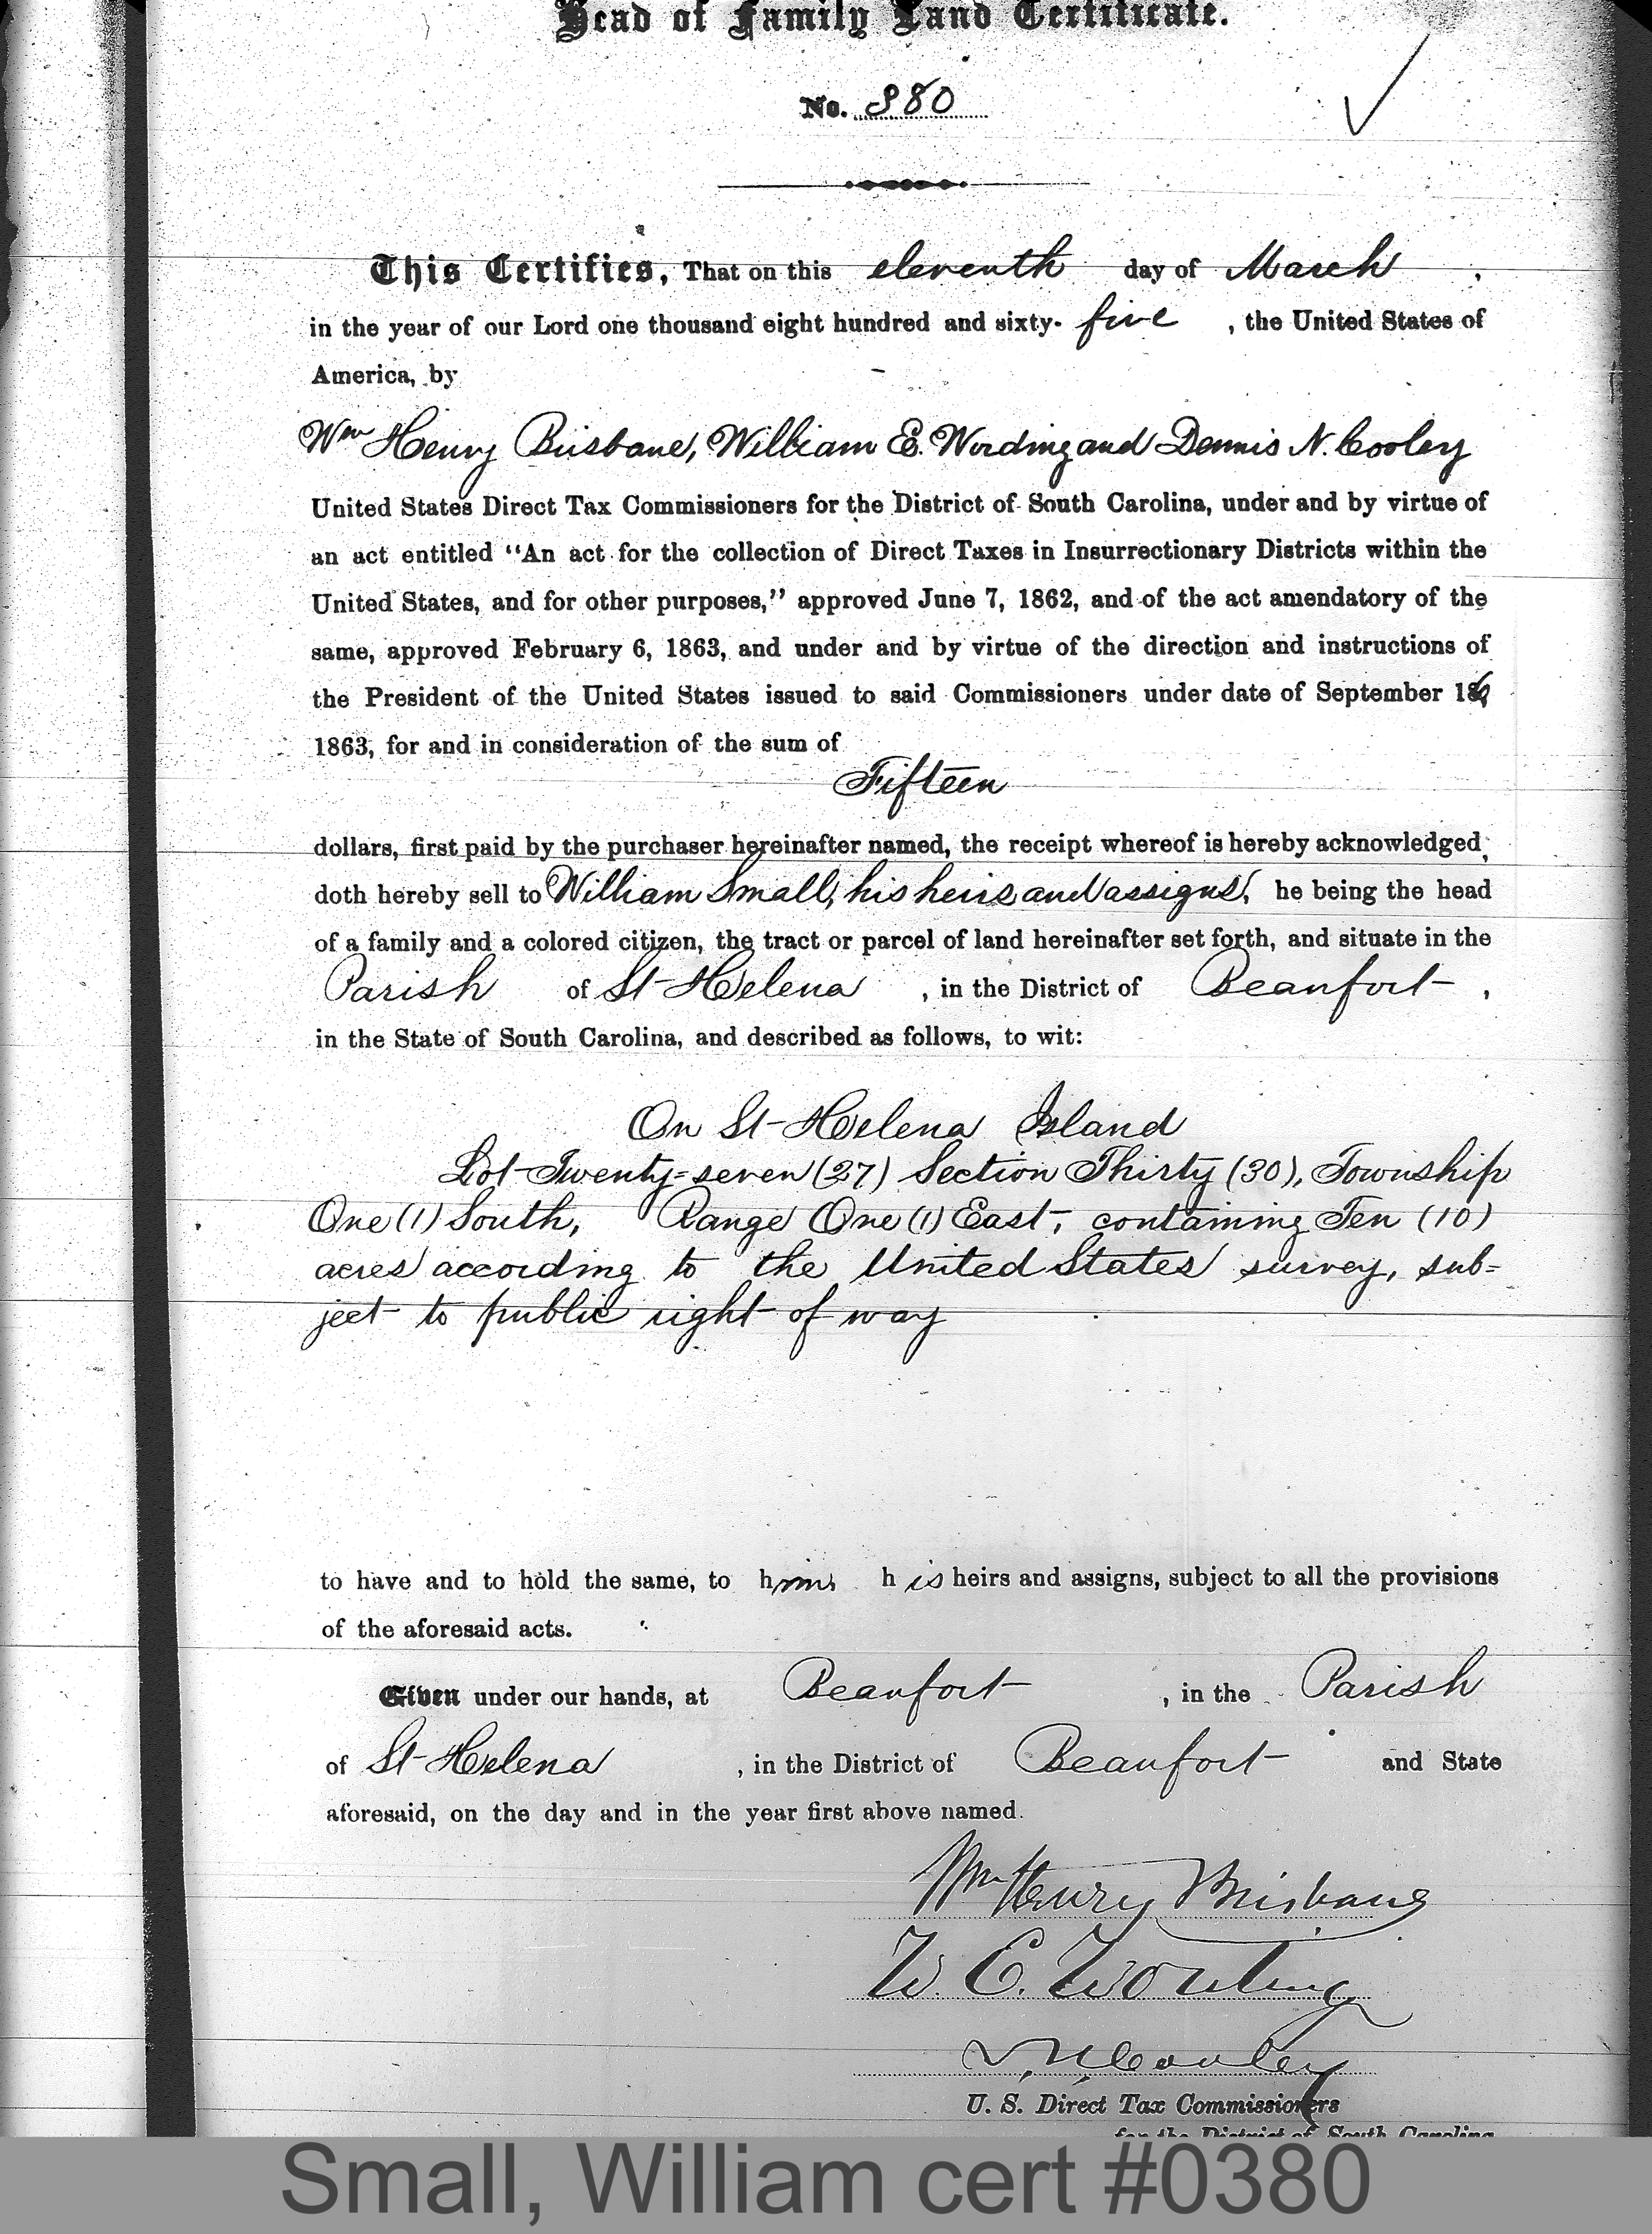 Head of Family Land Certificate.
No. 380
This Certifies, That on this eleventh day of March,
in the year of our Lord one thousand eight hundred and sixty-five, the United States of
America, by
Wm Henry Brisbane, William E. Wording and Dennis N. Cooley
United States Direct Tax Commissioners for the District of South Carolina, under and by virtue of
an act entitled "An act for the collection of Direct Taxes in Insurrectionary Districts within the
United States, and for other purposes," approved June 7, 1862, and of the act amendatory of the
same, approved February 6, 1863, and under and by virtue of the direction and instructions of
the President of the United States issued to said Commissioners under date of September 16
1863, for and in consideration of the sum of
Fifteen
dollars, first paid by the purchaser hereinafter named, the receipt whereof is hereby acknowledged,
doth hereby sell to William Small, his heirs and assigns, he being the head
of a family and a colored citizen, the tract or parcel of land hereinafter set forth, and situate in the
Parish of St Helena, in the District of Beaufort,
in the State of South Carolina, and described as follows, to wit:
On St Helena Island
Lot Twenty=seven (27) Section Thirty (30), Township
One (1) South, Range One (1) East, containing Ten (10)
acres according to the United States survey, sub=
ject to public right of way
to have and to hold the same, to him his heirs and assigns, subject to all the provisions
of the aforesaid acts.
Given under our hands, at Beaufort, in the Parish
of St Helena, in the District of Beaufort and State
aforesaid, on the day and in the year first above named.
Wm Henry Brisbane
W. E. Wording
D. N. Cooley
U. S. Direct Tax Commissioners
for the District of South Carolina
Small, William cert #0380